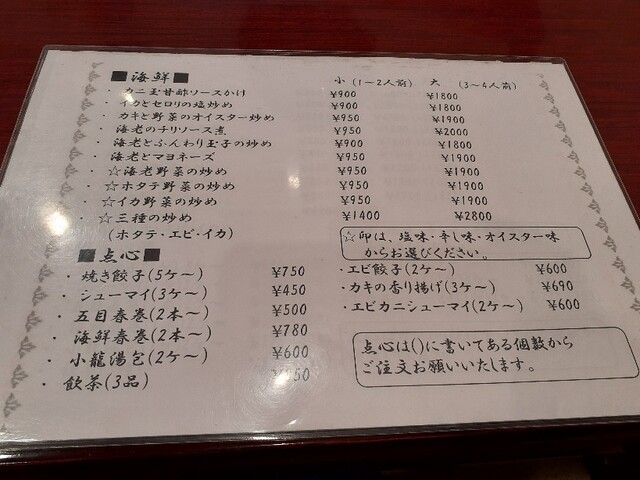 ■海鮮■ 小 (1～2人前) 大 (3～4人前)
・カニ玉甘酢ソースかけ ¥900 ¥1800
・イカとセロリの塩炒め ¥900 ¥1800
・カキと野菜のオイスター炒め ¥950 ¥1900
・海老のチリソース煮 ¥950 ¥2000
・海老とふんわり玉子の炒め ¥900 ¥1800
・海老とマヨネーズ ¥950 ¥1900
・☆海老野菜の炒め ¥950 ¥1900
・☆ホタテ野菜の炒め ¥950 ¥1900
・☆イカ野菜の炒め ¥950 ¥1900
・☆三種の炒め ¥1400 ¥2800
(ホタテ・エビ・イカ)
☆印は、塩味・辛し味・オイスター味
からお選びください。
■点心■
・焼き餃子(5ケ～) ¥750
・シューマイ(3ケ～) ¥450
・五目春巻(2本～) ¥500
・海鮮春巻(2本～) ¥780
・小籠湯包(2ケ～) ¥600
・飲茶(3品)
・エビ餃子(2ケ～) ¥600
・カキの香り揚げ(3ケ～) ¥690
・エビカニシューマイ(2ケ～) ¥600
点心は()に書いてある個数から
ご注文お願いいたします。